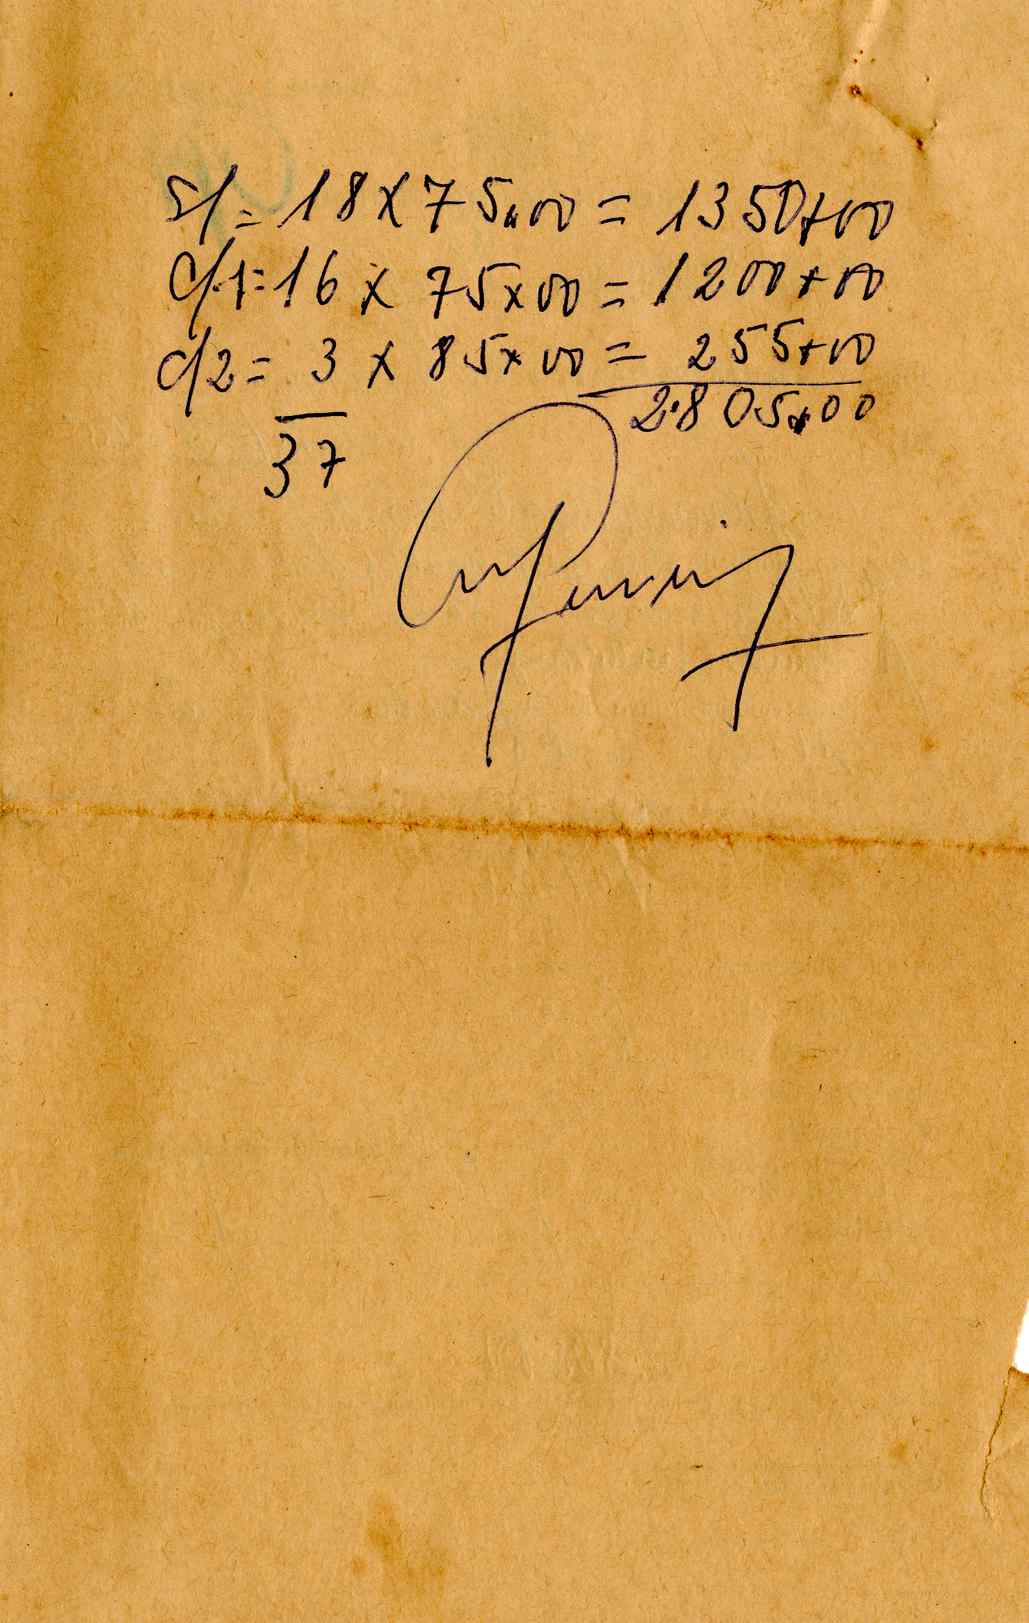 S/= 18 x 75x00 = 1350+00
C/1=16 x 75x00 = 1200+00
C/2= 3 x 85x00 = 255+00
37 2.805x00